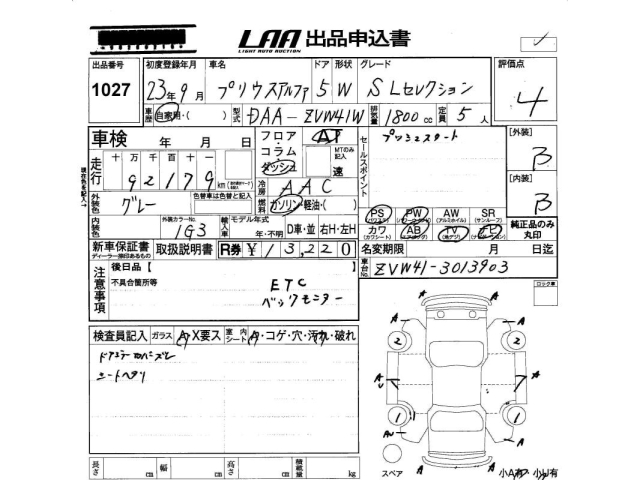 LAA 出品申込書
LIGHT AUTO AUCTION
出品番号 初度登録年月 車名 ドア 形状 グレード 評価点
1027 23年9月 プリウスアルファ 5 W Sセレクション 4
車歴 自家用・( ) 型式 DAA-ZVW41W 排気量 1800cc 定員 5人
車検 年 月 日 フロア・コラム・ダッシュ AT MTのみ記入 速 セールスポイント プッシュスタート [外装] B
走行 十 万 千 百 十 一
92179 km
冷房 AAC [内装] B
外装色 グレー 色替車は色替と記入 燃料 ガソリン・軽油・( )
PS PW AW SR
(パワステ) (パワーウィンドウ) (アルミホイル) (サンルーフ)
カワ AB TV
(本革シート) (エアバッグ) (ナビゲーション)
純正品のみ丸印
内装色 外装カラーNo. 1G3 輸入車 モデル年式 年・不明 D車・並 右H・左H
新車保証書 取扱説明書 R券 ¥13,220 名変期限 月 日迄
ディーラー捺印あるもの
車台No. ZVW41-3013903
注意事項 後日品【 】
不具合箇所等
ETC
バックモニター
ロック車
検査員記入 ガラス A・X要ス 室内シート A・コゲ・穴・汚れ・破れ
シートヘタリ
A A
2 2
A A
1 1
A
長さ cm 幅 cm 高さ cm 積載量 kg
スペア 小A有 小U有